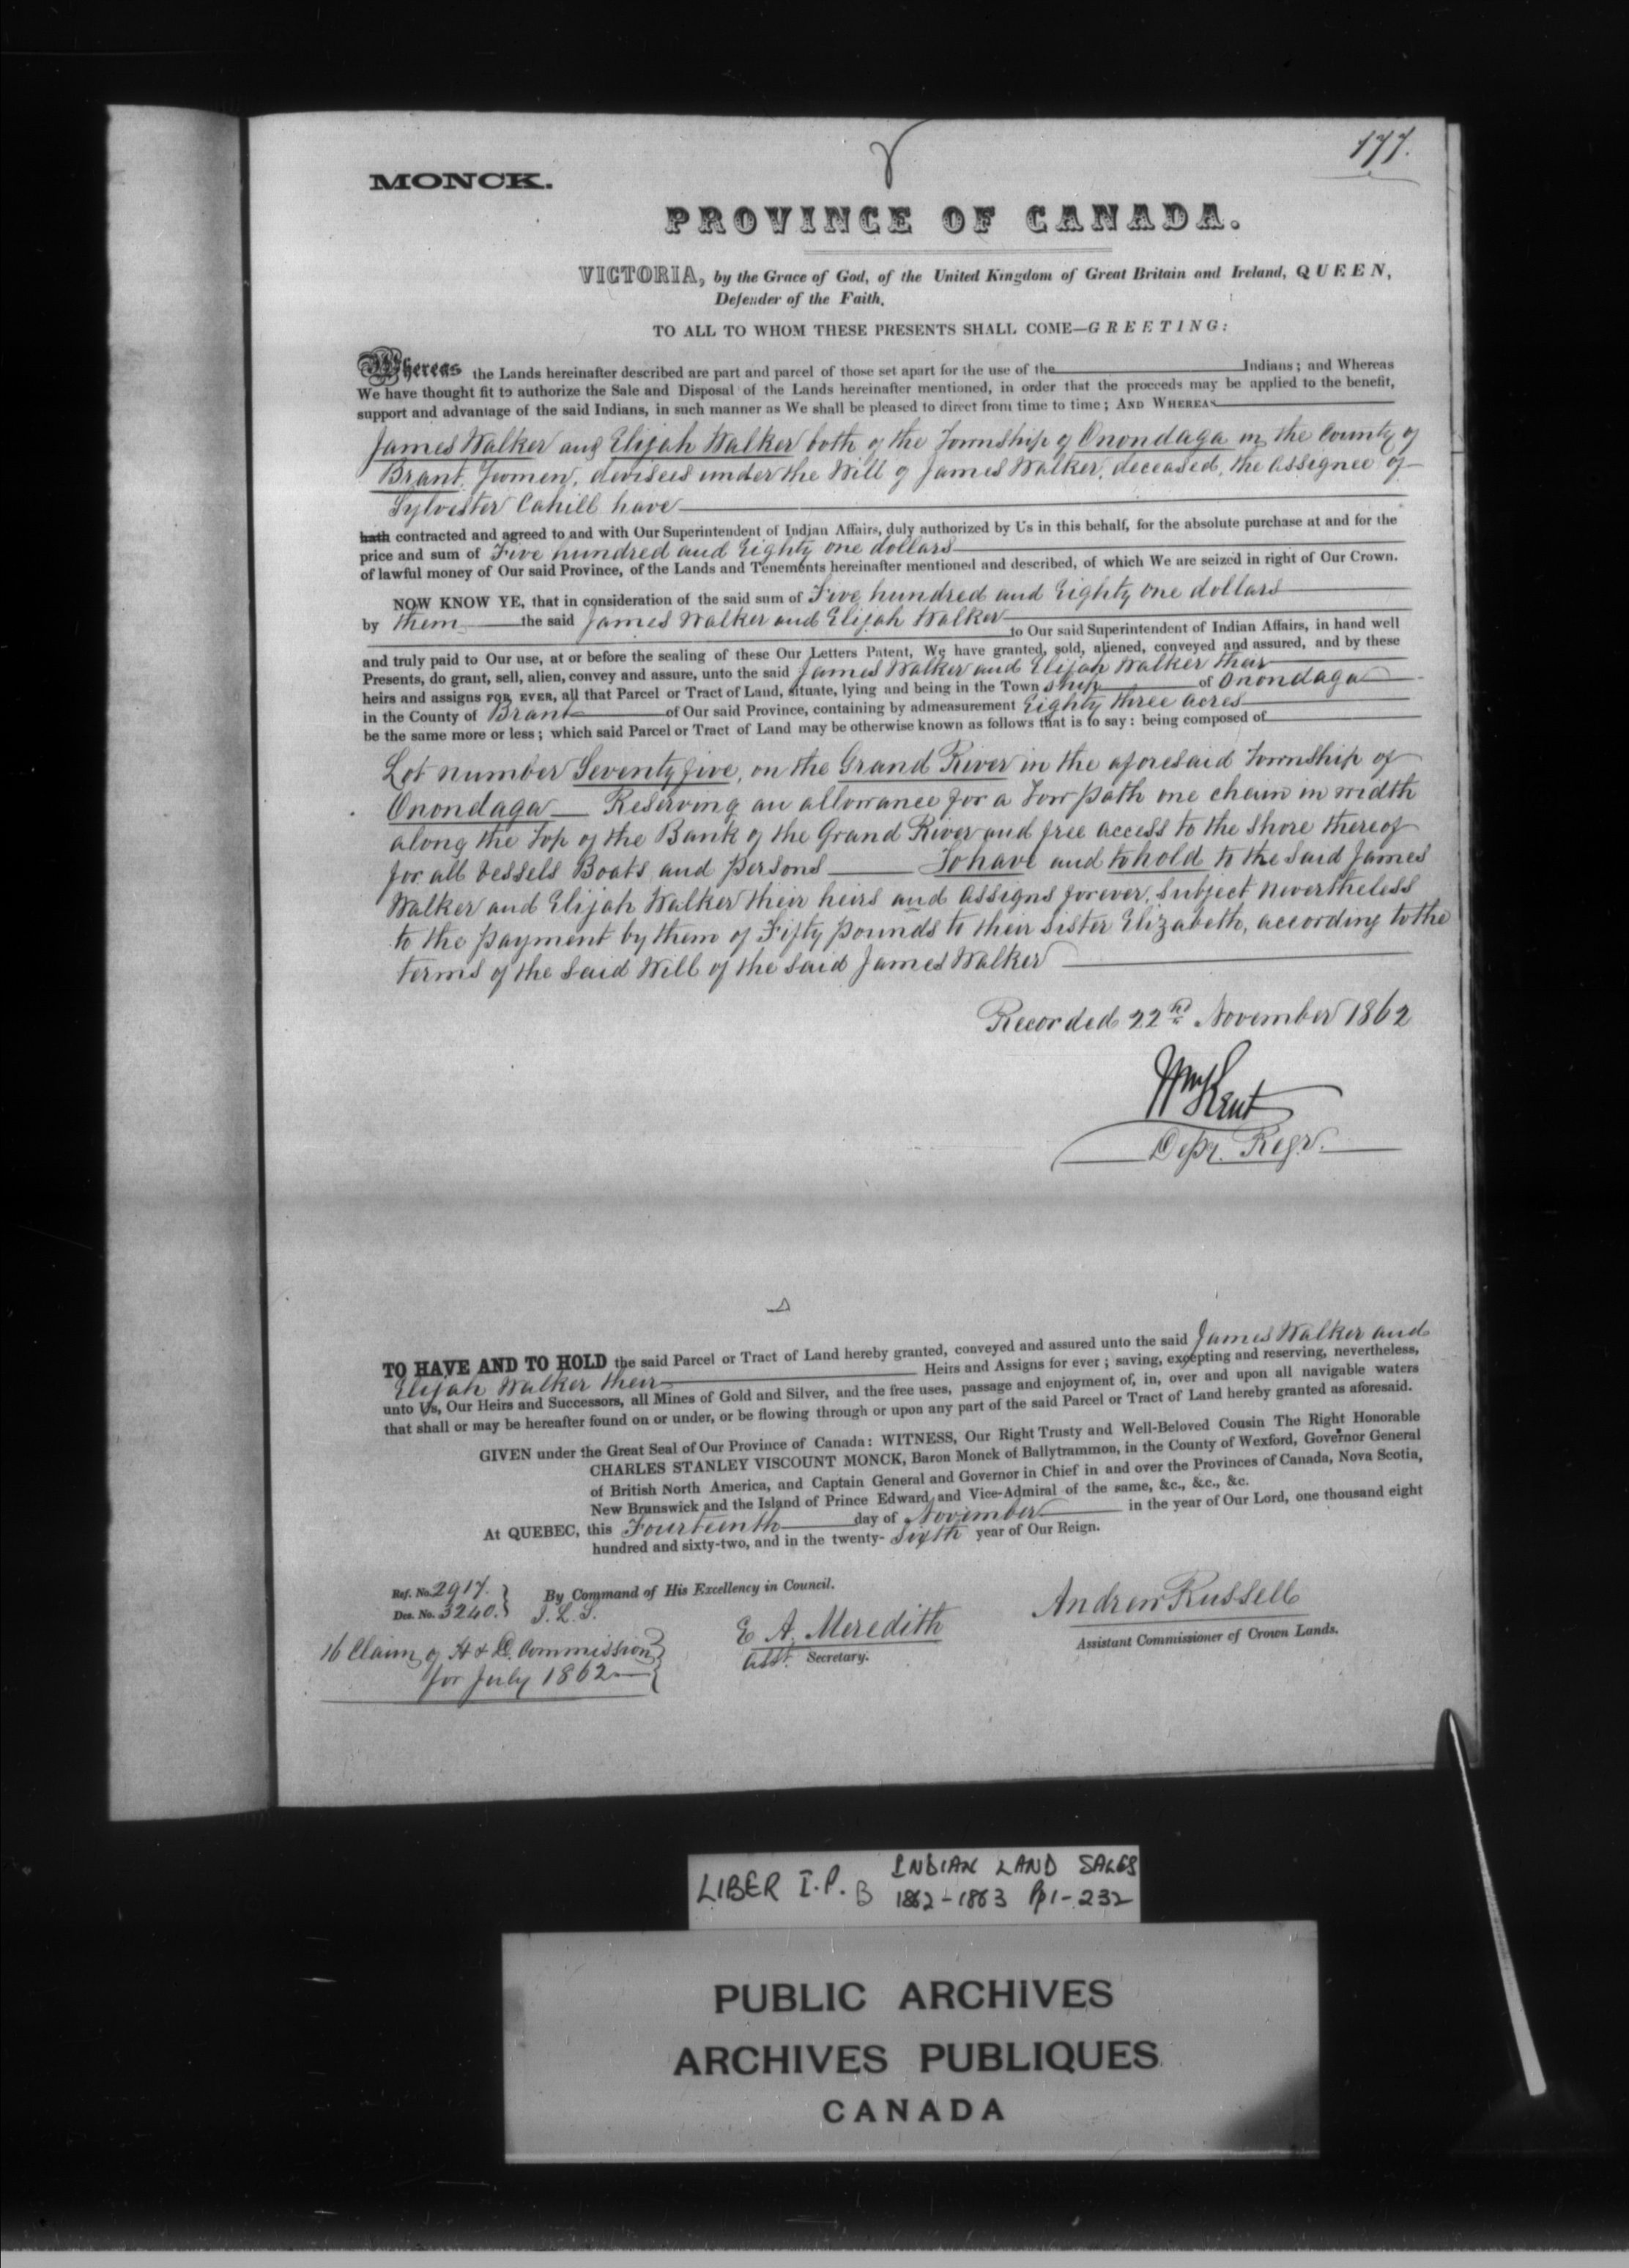 177.
MONCK.
PROVINCE OF CANADA.
VICTORIA, by the Grace of God, of the United Kingdom of Great Britain and Ireland, QUEEN,
Defender of the Faith,
TO ALL TO WHOM THESE PRESENTS SHALL COME—GREETING:
Whereas the Lands hereinafter described are part and parcel of those set apart for the use of the Indians; and Whereas
We have thought fit to authorize the Sale and Disposal of the Lands hereinafter mentioned, in order that the proceeds may be applied to the benefit,
support and advantage of the said Indians, in such manner as We shall be pleased to direct from time to time; AND WHEREAS
James Walker and Elijah Walker both of the Township of Onondaga in the County of
Brant, Yeomen, devisees under the Will of James Walker, deceased, the Assignee of
Sylvester Cahill have
hath contracted and agreed to and with Our Superintendent of Indian Affairs, duly authorized by Us in this behalf, for the absolute purchase at and for the
price and sum of Five hundred and Eighty one dollars
of lawful money of Our said Province, of the Lands and Tenements hereinafter mentioned and described, of which We are seized in right of Our Crown.
NOW KNOW YE, that in consideration of the said sum of Five hundred and Eighty one dollars
by them the said James Walker and Elijah Walker
to Our said Superintendent of Indian Affairs, in hand well
and truly paid to Our use, at or before the sealing of these Our Letters Patent, We have granted, sold, aliened, conveyed and assured, and by these
Presents, do grant, sell, alien, convey and assure, unto the said James Walker and Elijah Walker their
heirs and assigns FOR EVER, all that Parcel or Tract of Land, situate, lying and being in the Town ship of Onondaga
in the County of Brant of Our said Province, containing by admeasurement Eighty three acres
be the same more or less; which said Parcel or Tract of Land may be otherwise known as follows that is to say: being composed of
Lot number Seventy five, on the Grand River in the aforesaid Township of
Onondaga — Reserving an allowance for a Tow path one chain in width
along the Top of the Bank of the Grand River and free access to the shore thereof
for all Vessels Boats and persons — To have and to hold to the said James
Walker and Elijah Walker their heirs and assigns forever, Subject nevertheless
to the payment by them of Fifty pounds to their sister Elizabeth, according to the
terms of the said Will of the said James Walker
Recorded 22nd November 1862
Wm Kent
Depy. Regr.
TO HAVE AND TO HOLD the said Parcel or Tract of Land hereby granted, conveyed and assured unto the said James Walker and
Elijah Walker their Heirs and Assigns for ever; saving, excepting and reserving, nevertheless,
unto Us, Our Heirs and Successors, all Mines of Gold and Silver, and the free uses, passage and enjoyment of, in, over and upon all navigable waters
that shall or may be hereafter found on or under, or be flowing through or upon any part of the said Parcel or Tract of Land hereby granted as aforesaid.
GIVEN under the Great Seal of Our Province of Canada: WITNESS, Our Right Trusty and Well-Beloved Cousin The Right Honorable
CHARLES STANLEY VISCOUNT MONCK, Baron Monck of Ballytrammon, in the County of Wexford, Governor General
of British North America, and Captain General and Governor in Chief in and over the Provinces of Canada, Nova Scotia,
New Brunswick and the Island of Prince Edward, and Vice-Admiral of the same, &c., &c., &c.
At QUEBEC, this Fourteenth day of November in the year of Our Lord, one thousand eight
hundred and sixty-two, and in the twenty- Sixth year of Our Reign.
Ref. No. 2917.
Des. No. 3240.
By Command of His Excellency in Council.
I. L. S.
16 Claim of H & D. Commission
for July 1862
E. A. Meredith
Asst. Secretary.
Andrew Russell
Assistant Commissioner of Crown Lands.
LIBER I.P. B INDIAN LAND SALES
1862-1863 Pp 1-232
PUBLIC ARCHIVES
ARCHIVES PUBLIQUES
CANADA